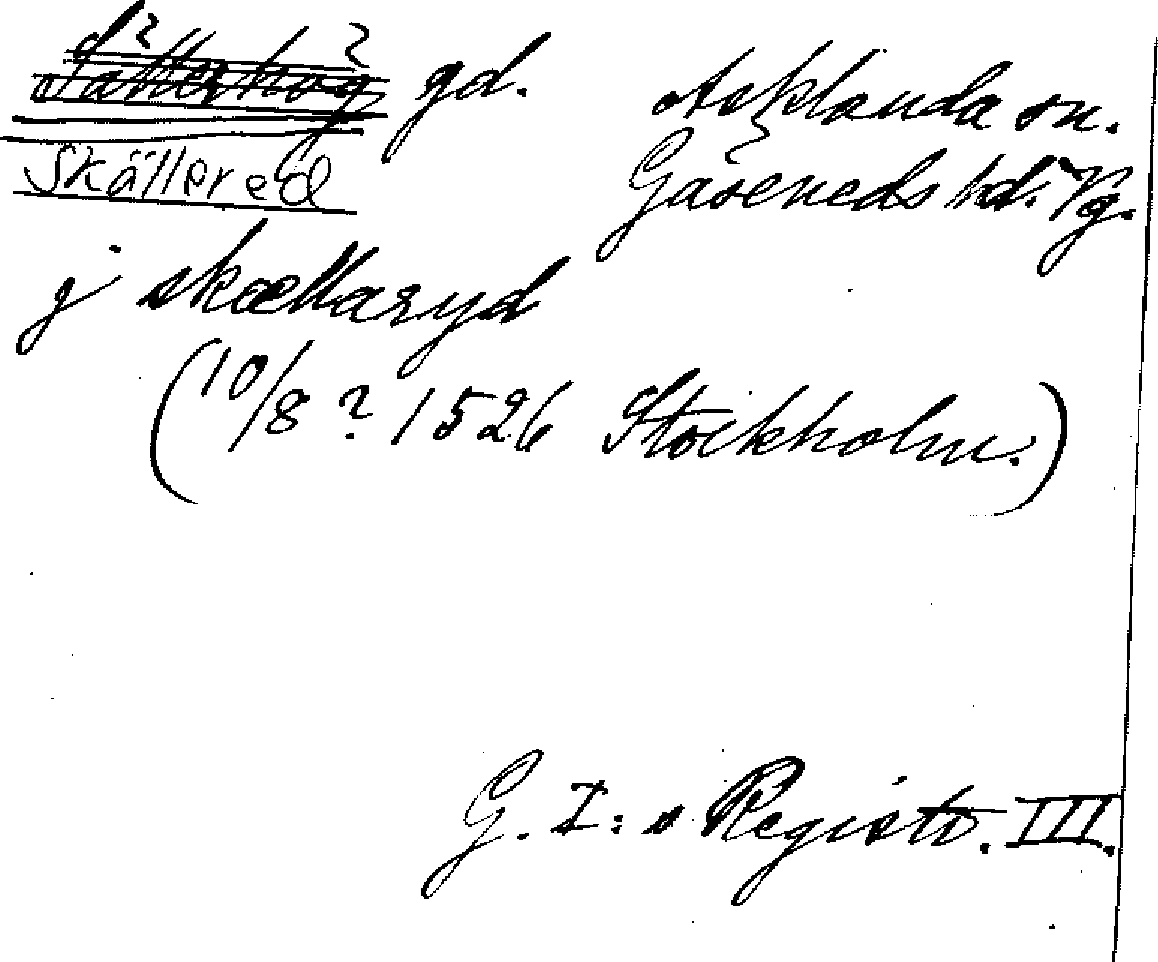 gd. Asklanda sn.
Skällered Gäseneds hd. Vg.
j skællaryd
(10/8 ? 1526 Stockholm.)
G. I:s Registr. III.